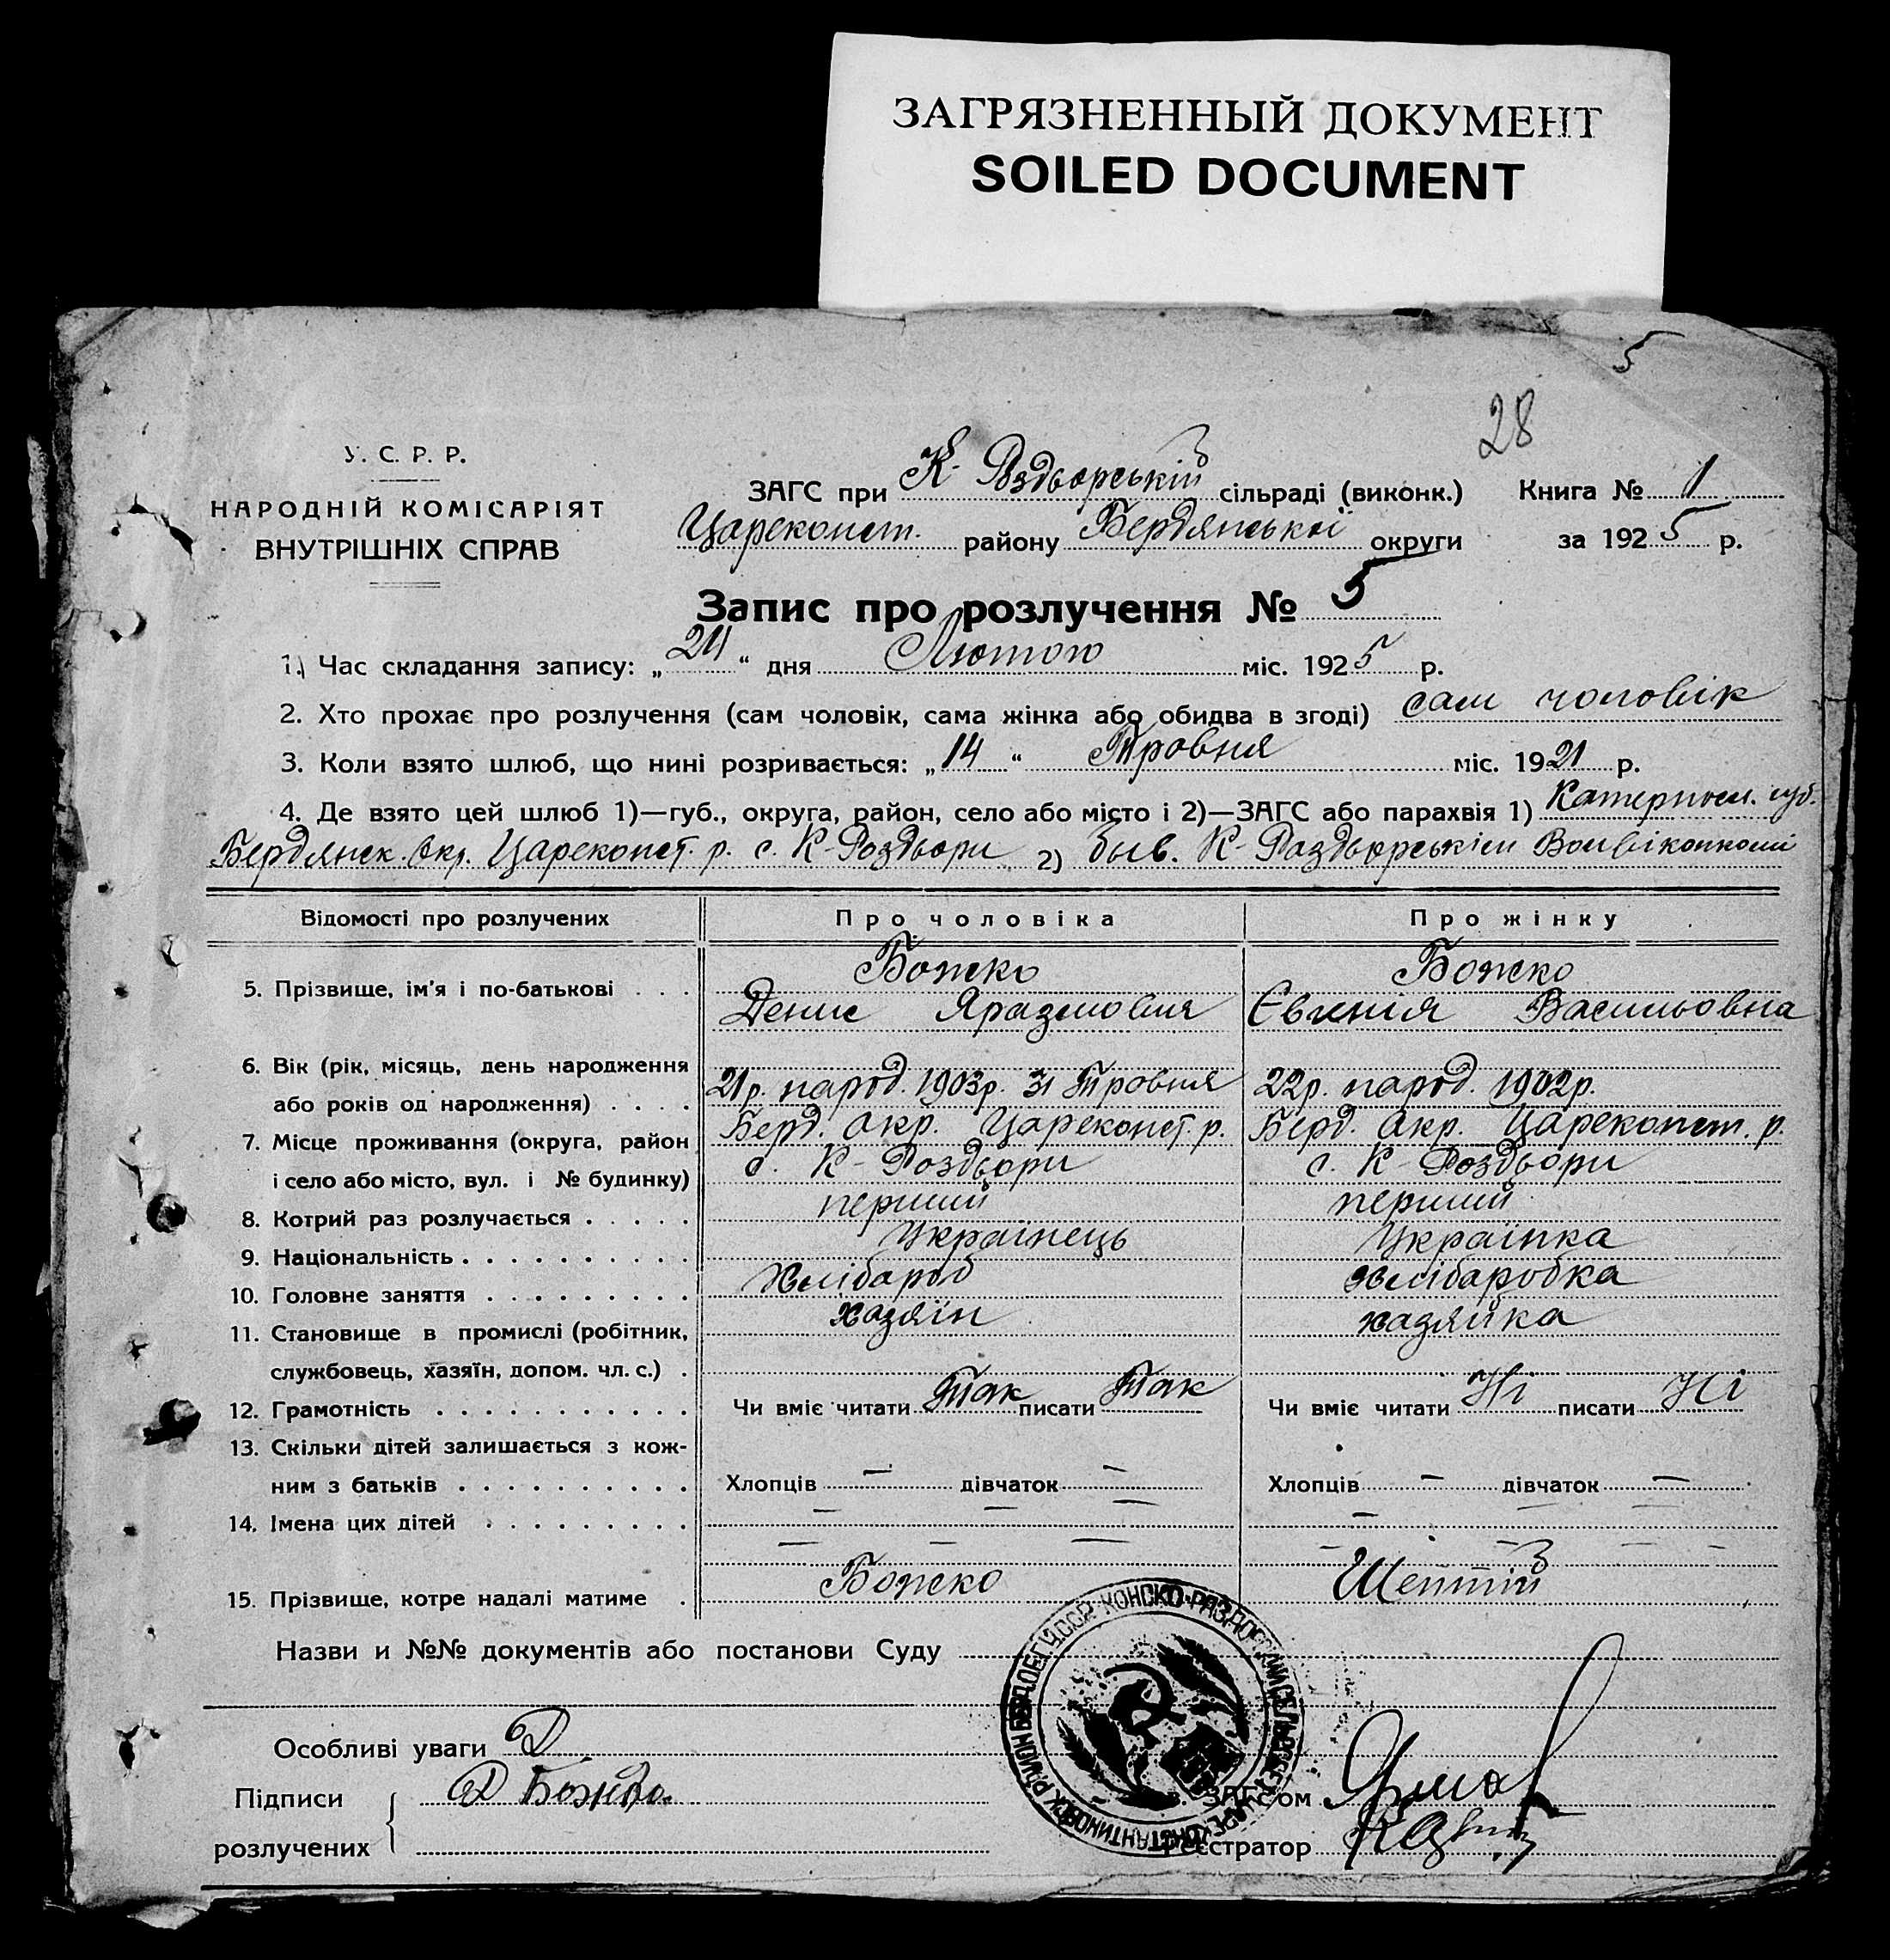 ЗАГРЯЗНЕННЫЙ ДОКУМЕНТ
SOILED DOCUMENT
5
28
У. С. Р. Р.
НАРОДНІЙ КОМІСАРІЯТ
ВНУТРІШНІХ СПРАВ
ЗАГС при К- Роздьорській сільраді (виконк.) Книга № 1
Цареконст. району Бердянської округи за 1925 р.
Запис про розлучення № 5
1. Час складання запису: „24“ дня Лютого міс. 1925 р.
2. Хто прохає про розлучення (сам чоловік, сама жінка або обидва в згоді) сам чоловік
3. Коли взято шлюб, що нині розривається: „14“ Тровня міс. 1921 р.
4. Де взято цей шлюб 1)—губ., округа, район, село або місто і 2)—ЗАГС або парахвія 1) Катеринос. губ.
Бердянск. Окр. Цареконст. р. с. К-Роздьори 2) быв. К- Раздьорськім Волвіконкомі
Відомості про розлучених Про чоловіка Про жінку
Божко Божко
5. Прізвище, ім'я і по-батькові . . . Денис Яразмовия Євгенія Васильовна
6. Вік (рік, місяць, день народження
або років од народження) . . . . 21р. народ. 1903р. 31 Тровня 22р. народ. 1902р.
7. Місце проживання (округа, район Берд. Окр. Цареконст. р. Берд. Окр. Цареконст. р.
і село або місто, вул. і № будинку) с. К-Роздьори с. К-Роздьори
8. Котрий раз розлучається . . . . . перший перший
9. Національність . . . . . . . . . . Українець Українка
10. Головне заняття . . . . . . . . . Хлібароб Хлібаробка
11. Становище в промислі (робітник, хазяін хазяйка
службовець, хазяїн, допом. чл. с.) .
12. Грамотність . . . . . . . . . . . Чи вміє читати Так писати Так Чи вміє читати Ні писати Ні
13. Скільки дітей залишається з кож-
ним з батьків . . . . . . . . . . Хлопців — дівчаток — Хлопців — дівчаток —
14. Імена цих дітей . . . . . . . . . — — — —
15. Прізвище, котре надалі матиме . Божко Шептій
Назви и №№ документів або постанови Суду
Особливі уваги Д
Підписи Д Божко. ЗАГС'ом
розлучених Реєстратор